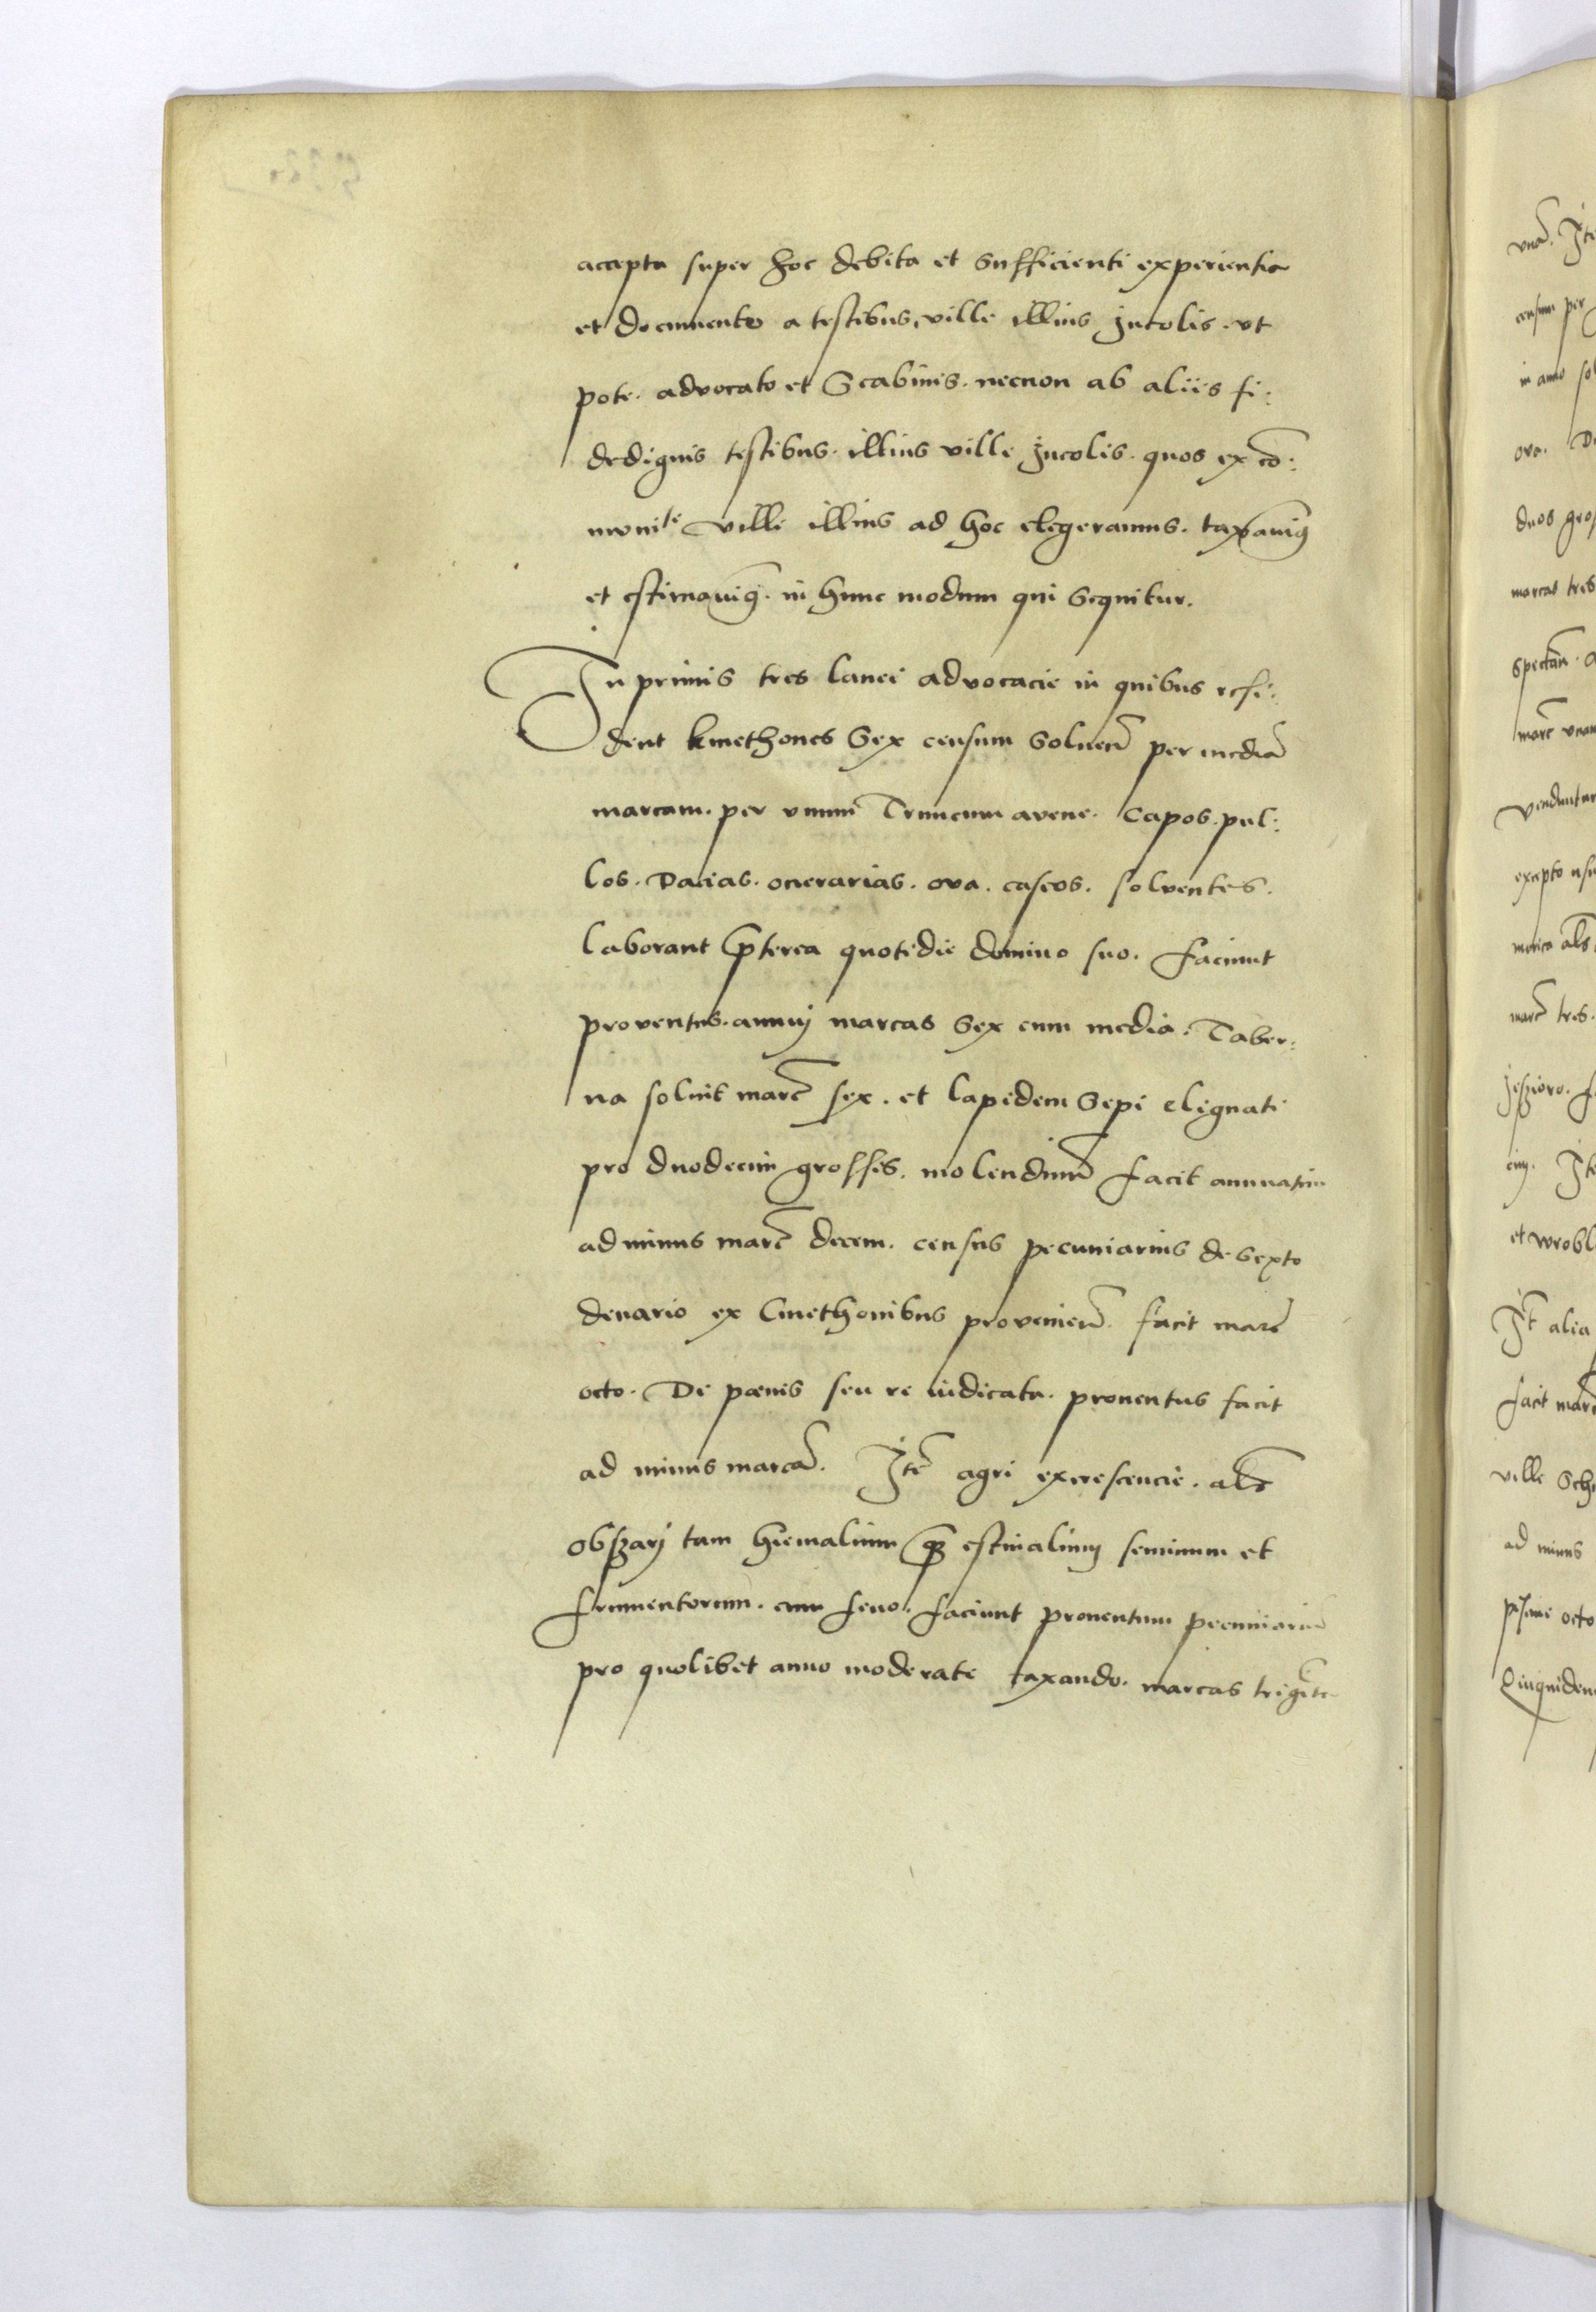 accepta super hoc debita et sufficienti experientia
et documento a testibus ville illius jncolis. vt
pote. advocato et Scabinis. necnon ab aliis fi:
dedignis testibus. illius ville jncolis. quos ex cō:
munite ville illius ad hoc elegeramus. taxavim9
et estimavim9. in hunc modum qui sequitur.
Jn primis tres lanei advocacie in quibus resi:
dent kmethones Sex censum soluen̄ per mediā
marcam. per vnum Truncum avene. Capos. pul:
los. Dacias. onerarias. ova. caseos. solventes.
laborant p̄terea quotidie domino suo. faciunt
proventus. annuj marcas Sex cum media. Taber:
na soluit marc̄ sex. et lapidem Sepi eliqnati
pro duodecim grossis. molendinū facit annuatim
ad minus marc̄ decem. census pecuniarius de sexto
denario ex Cmethonibus provenien̄. facit marc̄
octo. De pœnis seu re iudicata. prouentus facit
ad minus marcā. Jtē agri excrescencie. al̄s
obszarj tam hiemalium q̄ȝ estiualium seminum et
frumentorum. cum feno. faciunt prouentum pecuniariū
pro quolibet anno moderate taxando. marcas
vnā. Jte
censum per
in anno sol
ova. D
duos gros
marcas tres
spectan̄. a
marc̄ vnam
Venduntur
excepto
al̄s
marc̄ tres.
jeszioro. f
Jte
et wrobl
Jt̄ alia
facit marc̄
ville Sch
ad minus
octo